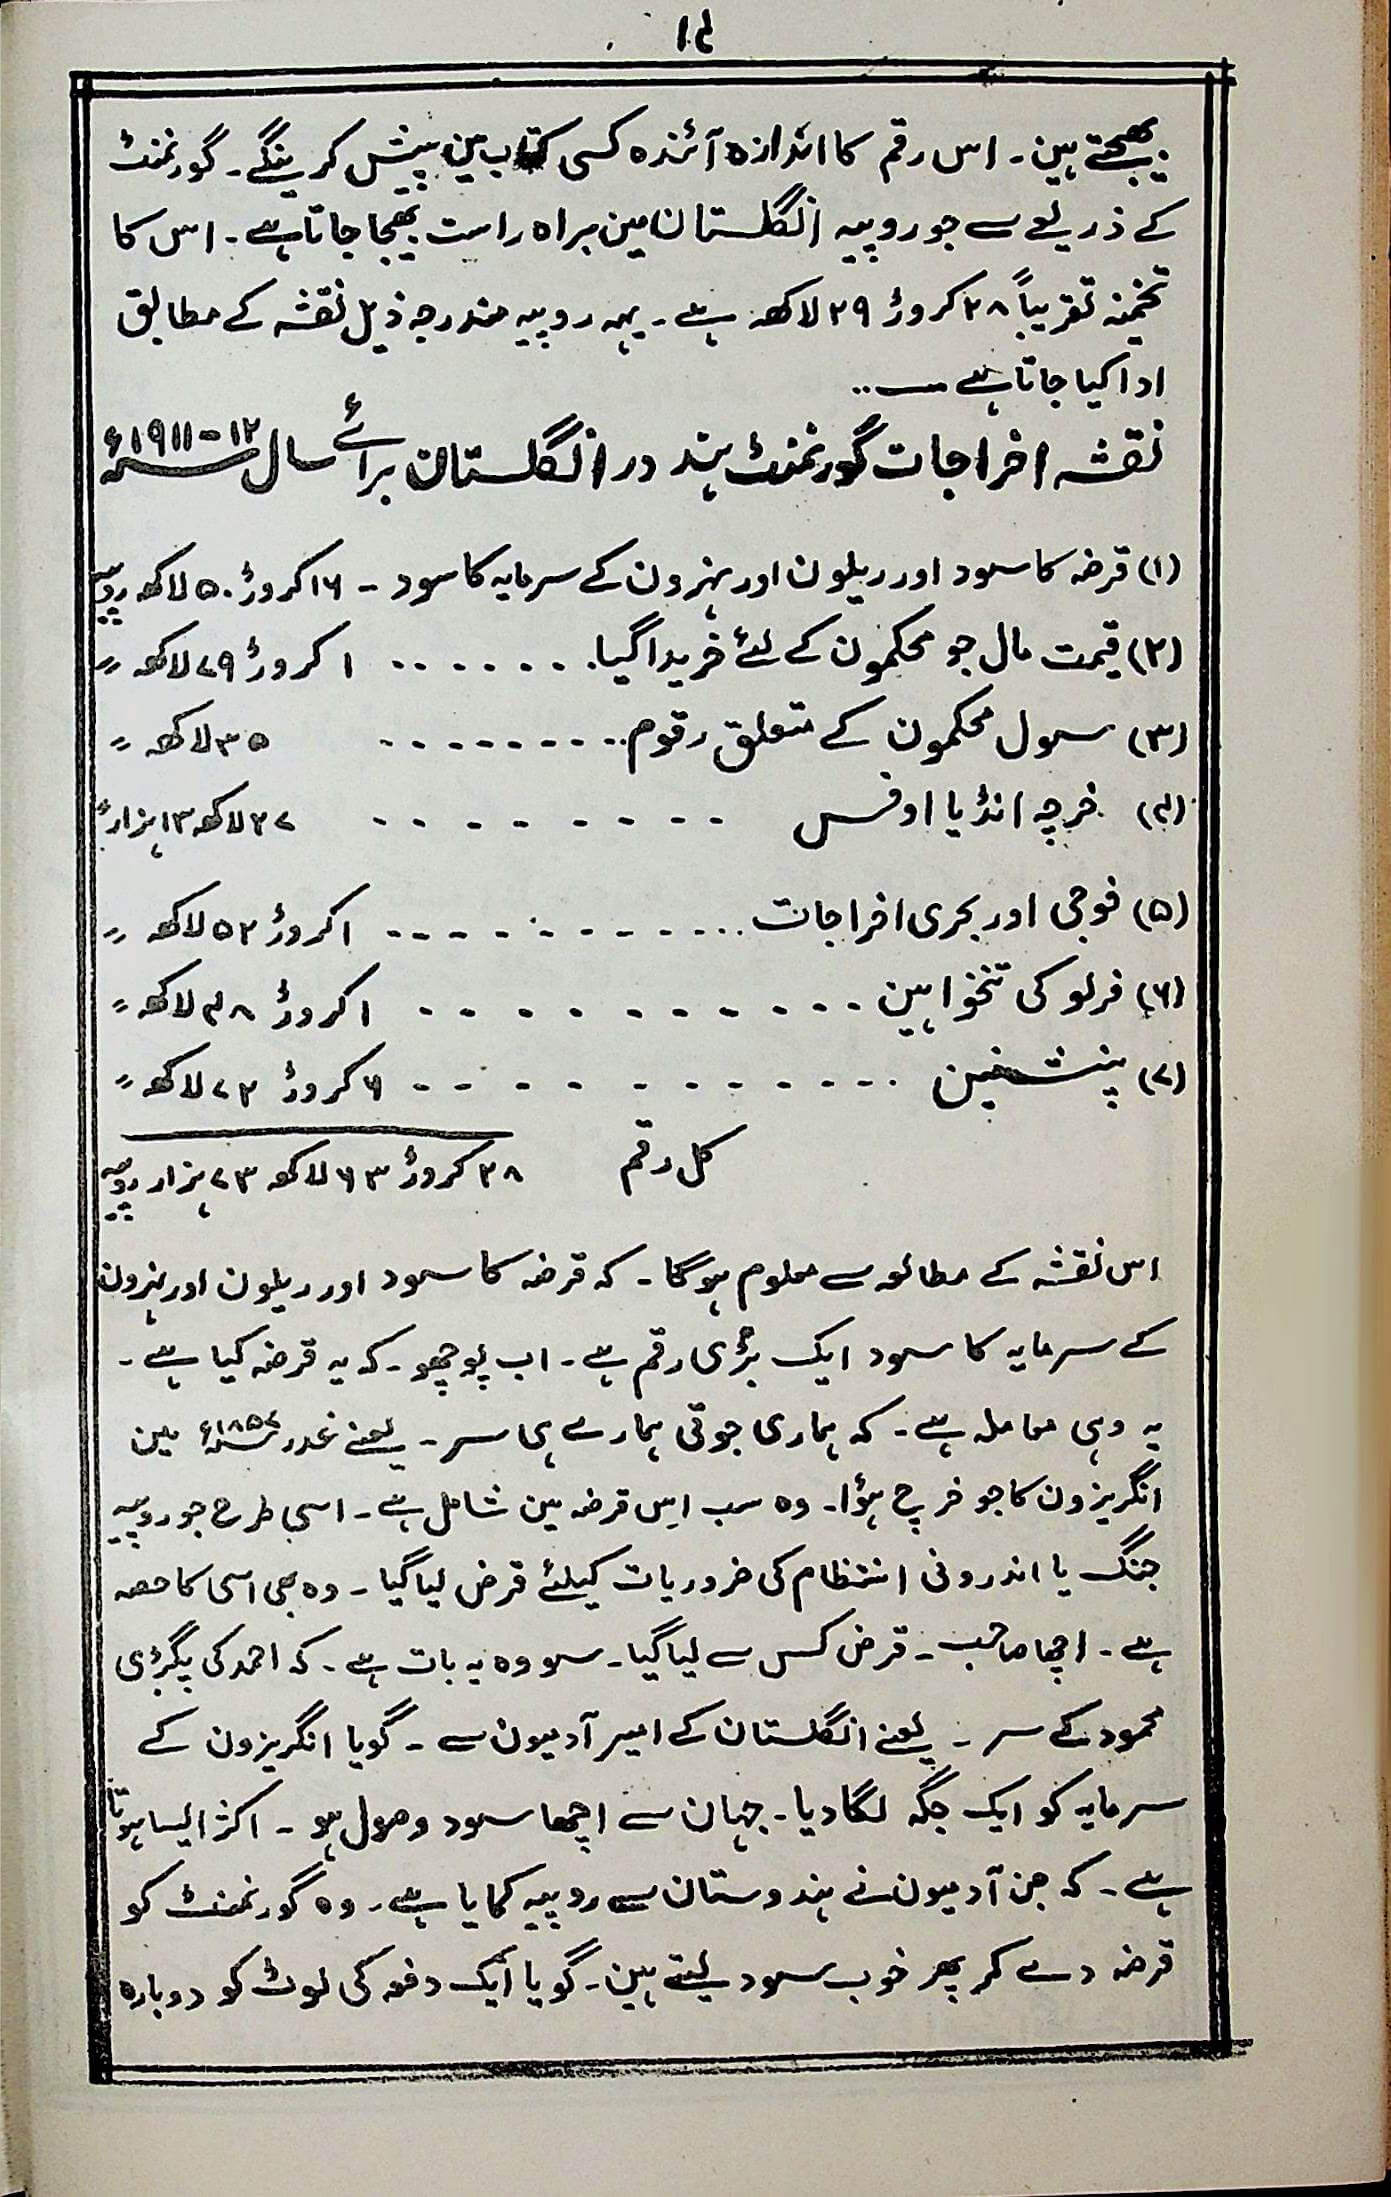 ۱۴
بھیجتے ہین ۔ اس رقم کا اندازہ آئندہ کسی کتاب مین پیش کرینگے ۔ گورنمنٹ
کے ذریعے سے جو روپیہ انگلستان مین براہ راست بھیجا جاتا ہے ۔ اس کا
تخمینہ تقریباً ۲۸ کروڑ ۲۹ لاکھ ہے ۔ یہہ روپیہ مندرجہ ذیل نقشہ کے مطابق
ادا کیا جاتا ہے ۔۔۔
نقشہ اخراجات گورنمنٹ ہند در انگلستان برائے سال ۱۲-۱۹۱۱ء
(۱) قرضہ کا سود اور ریلون اور نہرون کے سرمایہ کا سود - ۱۶ کروڑ ۵۰ لاکھ روپیہ
(۲) قیمت مال جو محکمون کے لئے خریدا گیا . . . . . . . ۱ کروڑ ۷۹ لاکھ ״
(۳) سول محکمون کے متعلق رقوم . . - - - - - - - - ۳۵ لاکھ ״
(۴) خرچہ انڈیا اوفس - - - - - - - - - ۲۷ لاکھ ۱۳ ہزار ״
(۵) فوجی اور بحری اخراجات . . . - - - - - - - - - ۱ کروڑ ۵۲ لاکھ ״
(۶) فرلو کی تنخواہین - - - - - - - - - - - ۱ کروڑ ۴۸ لاکھ ״
(۷) پنشنین - - - - - - - - - - - - ۶ کروڑ ۷۲ لاکھ ״
کل رقم ۲۸ کروڑ ۶۳ لاکھ ۷۳ ہزار روپیہ
اس نقشہ کے مطالعہ سے معلوم ہوگا ۔ کہ قرضہ کا سود اور ریلون اور نہرون
کے سرمایہ کا سود ایک بڑی رقم ہے ۔ اب پوچھو ۔ کہ یہ قرضہ کیا ہے ۔
یہ وہی معاملہ ہے ۔ کہ ہماری جوتی ہمارے ہی سر ۔ یعنے غدر ۱۸۵۷ء مین
انگریزون کا جو خرچ ہؤا ۔ وہ سب اِس قرضہ مین شامل ہے ۔ اسی طرح جو روپیہ
جنگ یا اندرونی انتظام کی ضروریات کیلئے قرض لیا گیا ۔ وہ بھی اسی کا حصہ
ہے ۔ اچھا صاحب ۔ قرض کس سے لیا گیا ۔ سو وہ یہ بات ہے ۔ کہ احمد کی پگڑی
محمود کے سر ۔ یعنے انگلستان کے امیر آدمیون سے ۔ گویا انگریزون کے
سرمایہ کو ایک جگہ لگا دیا ۔ جہان سے اچھا سود وصول ہو ۔ اکثر ایسا ہوتا
ہے ۔ کہ جن آدمیون نے ہندوستان سے روپیہ کمایا ہے ۔ وہ گورنمنٹ کو
قرضہ دے کر پھر خوب سود لیتے ہین ۔ گویا ایک دفعہ کی لوٹ کو دوبارہ